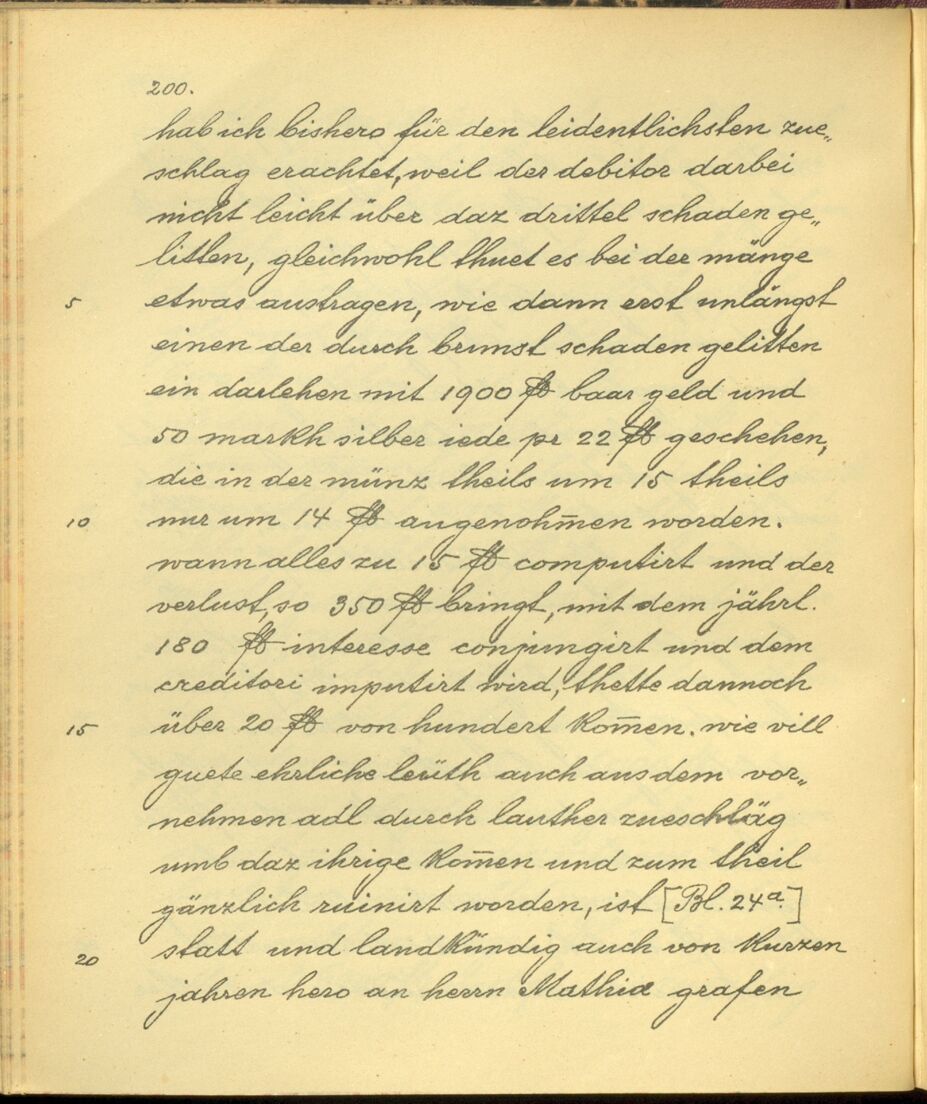 200.
hab ich bishero für den leidentlichsten zue„
schlag erachtet, weil der debitor darbei
nicht leicht über daz drittel schaden ge„
litten, gleichwohl thuet es bei der mänge
5 etwas austragen, wie dann erst unlängst
einen der durch brunst schaden gelitten
ein darlehen mit 1900 fl baar geld und
50 markh silber iede pr 22 fl geschehen,
die in der münz theils um 15 theils
10 nur um 14 fl angenoh̅men worden.
wann alles zu 15 fl computirt und der
verlust, so 350 fl bringt, mit dem jährl.
180 fl interesse conjungirt und dem
creditori imputirt wird, thette dannoch
15 über 20 fl von hundert kom̅en. wie vill
guete ehrliche leüth auch aus dem vor„
nehmen adl durch lauther zueschläg
umb daz ihrige kom̅en und zum theil
gänzlich ruinirt worden, ist [Bl. 24a.]
20 statt und landkündig auch von kurzen
jahren hero an herrn Mathiæ grafen